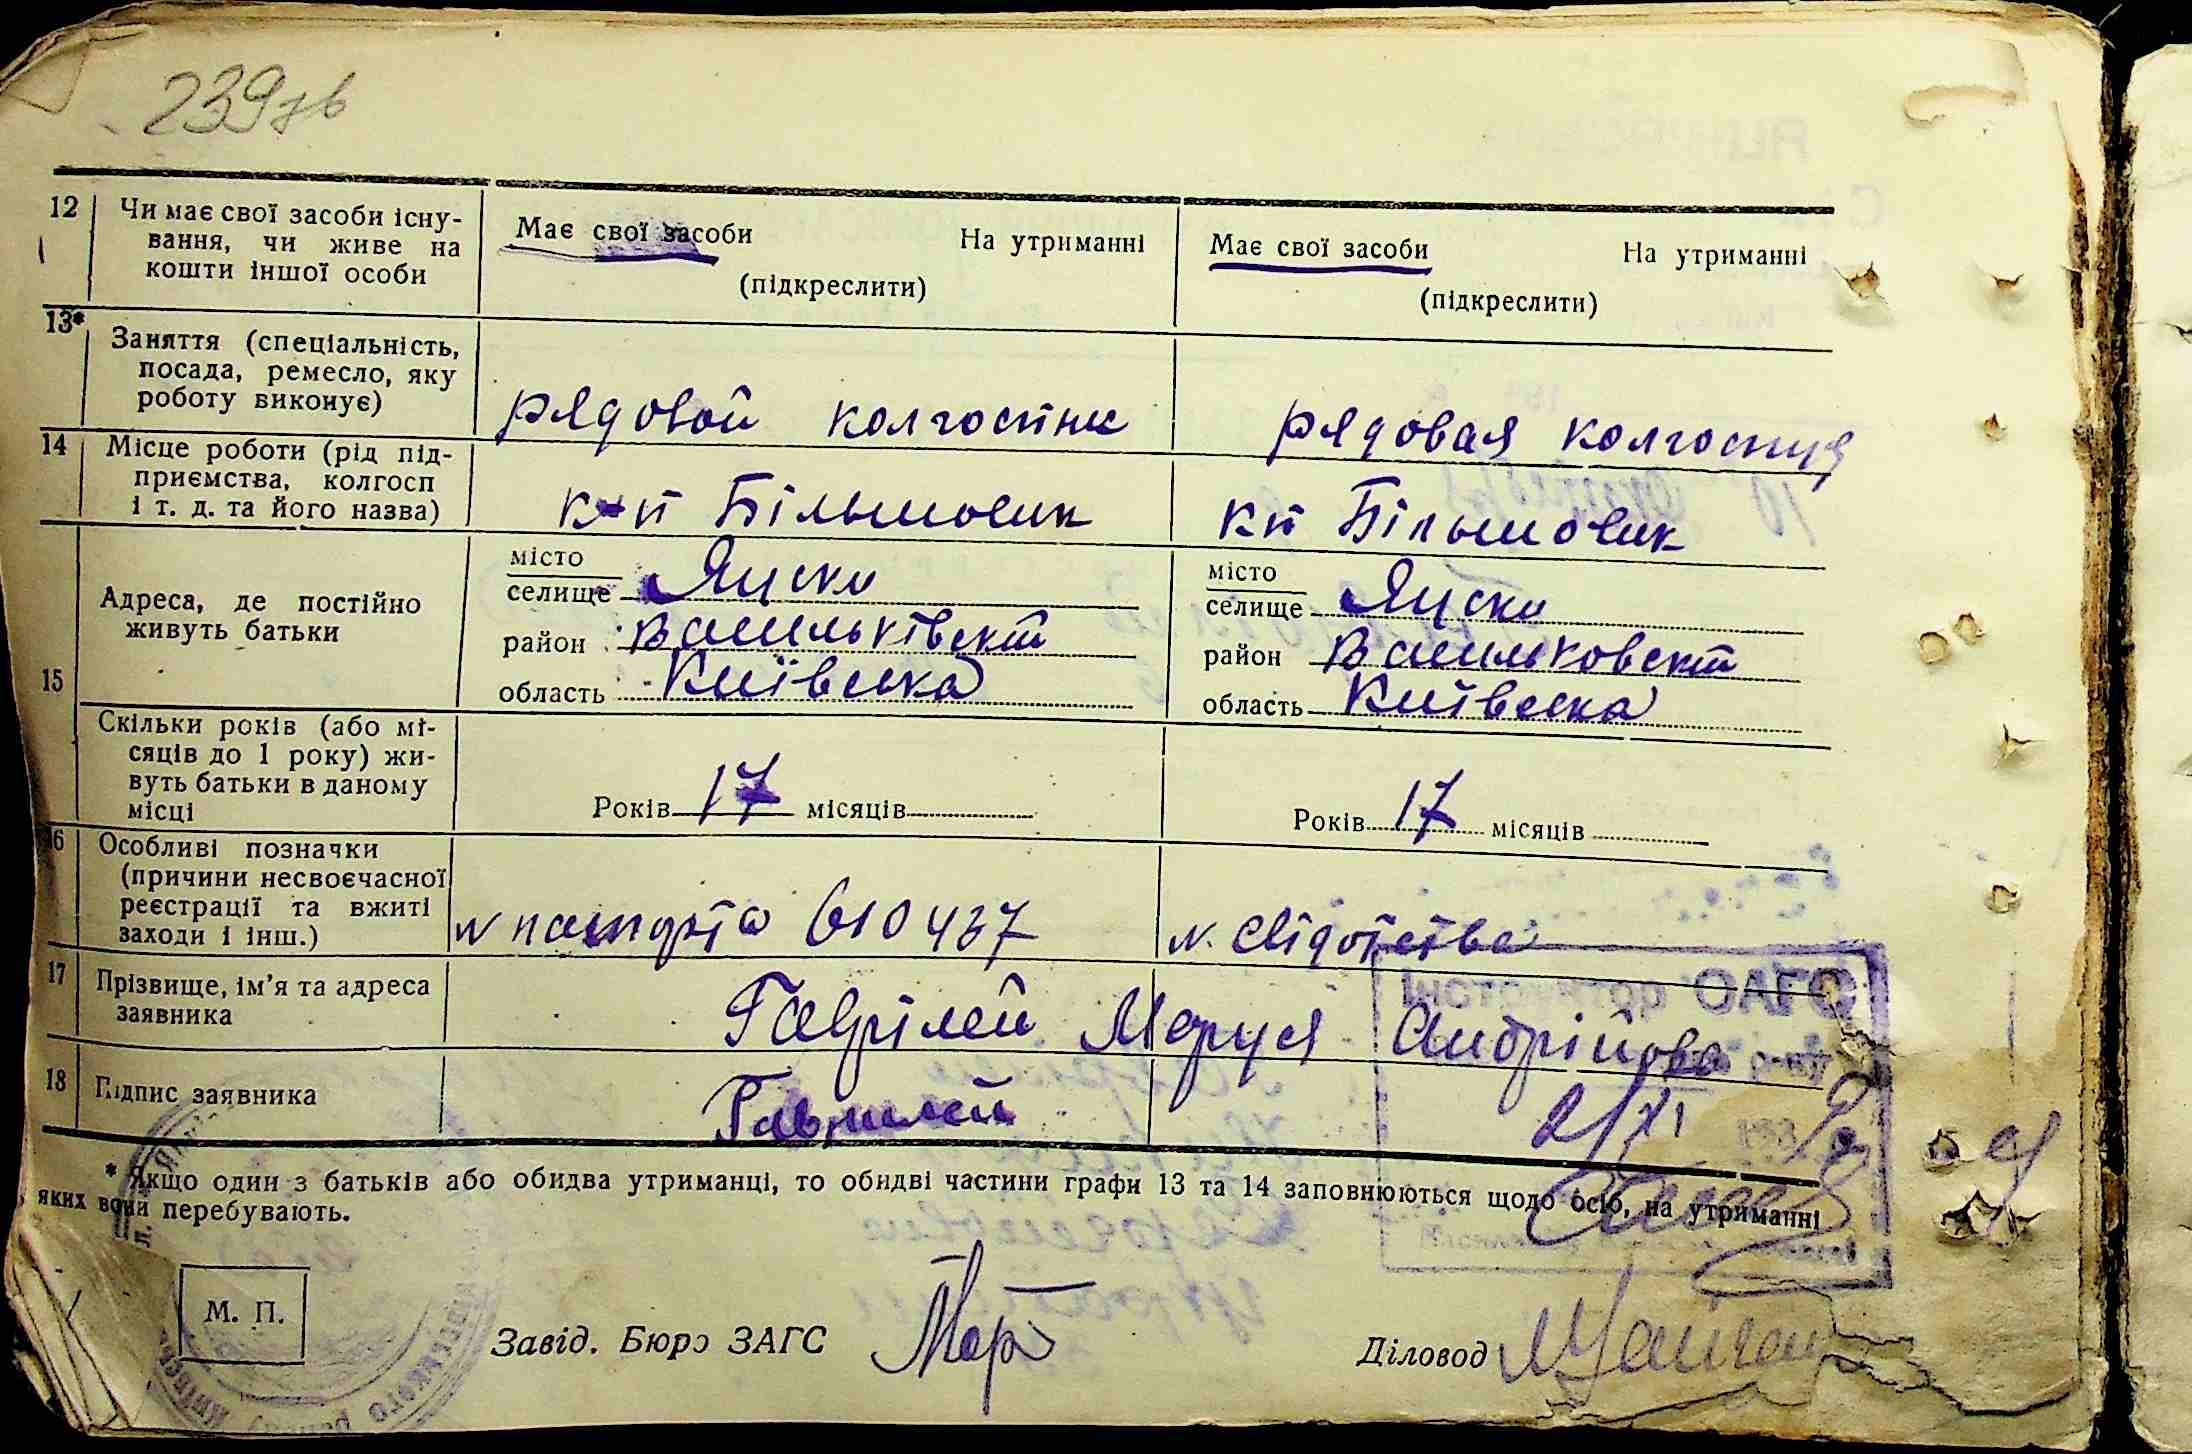 239зв
12 Чи має свої засоби існу-
вання, чи живе на
кошти іншої особи
Має свої засоби На утриманні
(підкреслити)
Має свої засоби На утриманні
(підкреслити)
13* Заняття (спеціальність,
посада, ремесло, яку
роботу виконує)
рядовой колгоспник
рядовая колгоспця
14 Місце роботи (рід під-
приємства, колгосп
і т. д. та його назва)
к-п Більшовик
кп Більшовик
15 Адреса, де постійно
живуть батьки
місто
селище Яцски
район Васильківскій
область Київська
місто
селище Яцски
район Васильковскій
область Київська
Скільки років (або мі-
сяців до 1 року) жи-
вуть батьки в даному
місці
Років 17 місяців
Років 17 місяців
16 Особливі позначки
(причини несвоєчасної
реєстрації та вжиті
заходи і інш.)
N паспорта 610437
N. свідотства
17 Прізвище, ім'я та адреса
заявника
Гаврілей Маруся Андрійова
18 Підпис заявника
Гаврилей
ЗАГС
2/XI
* Якщо один з батьків або обидва утриманці, то обидві частини графи 13 та 14 заповнюються щодо осіб, на утриманні
яких вони перебувають.
М. П.
Завід. Бюро ЗАГС
Діловод